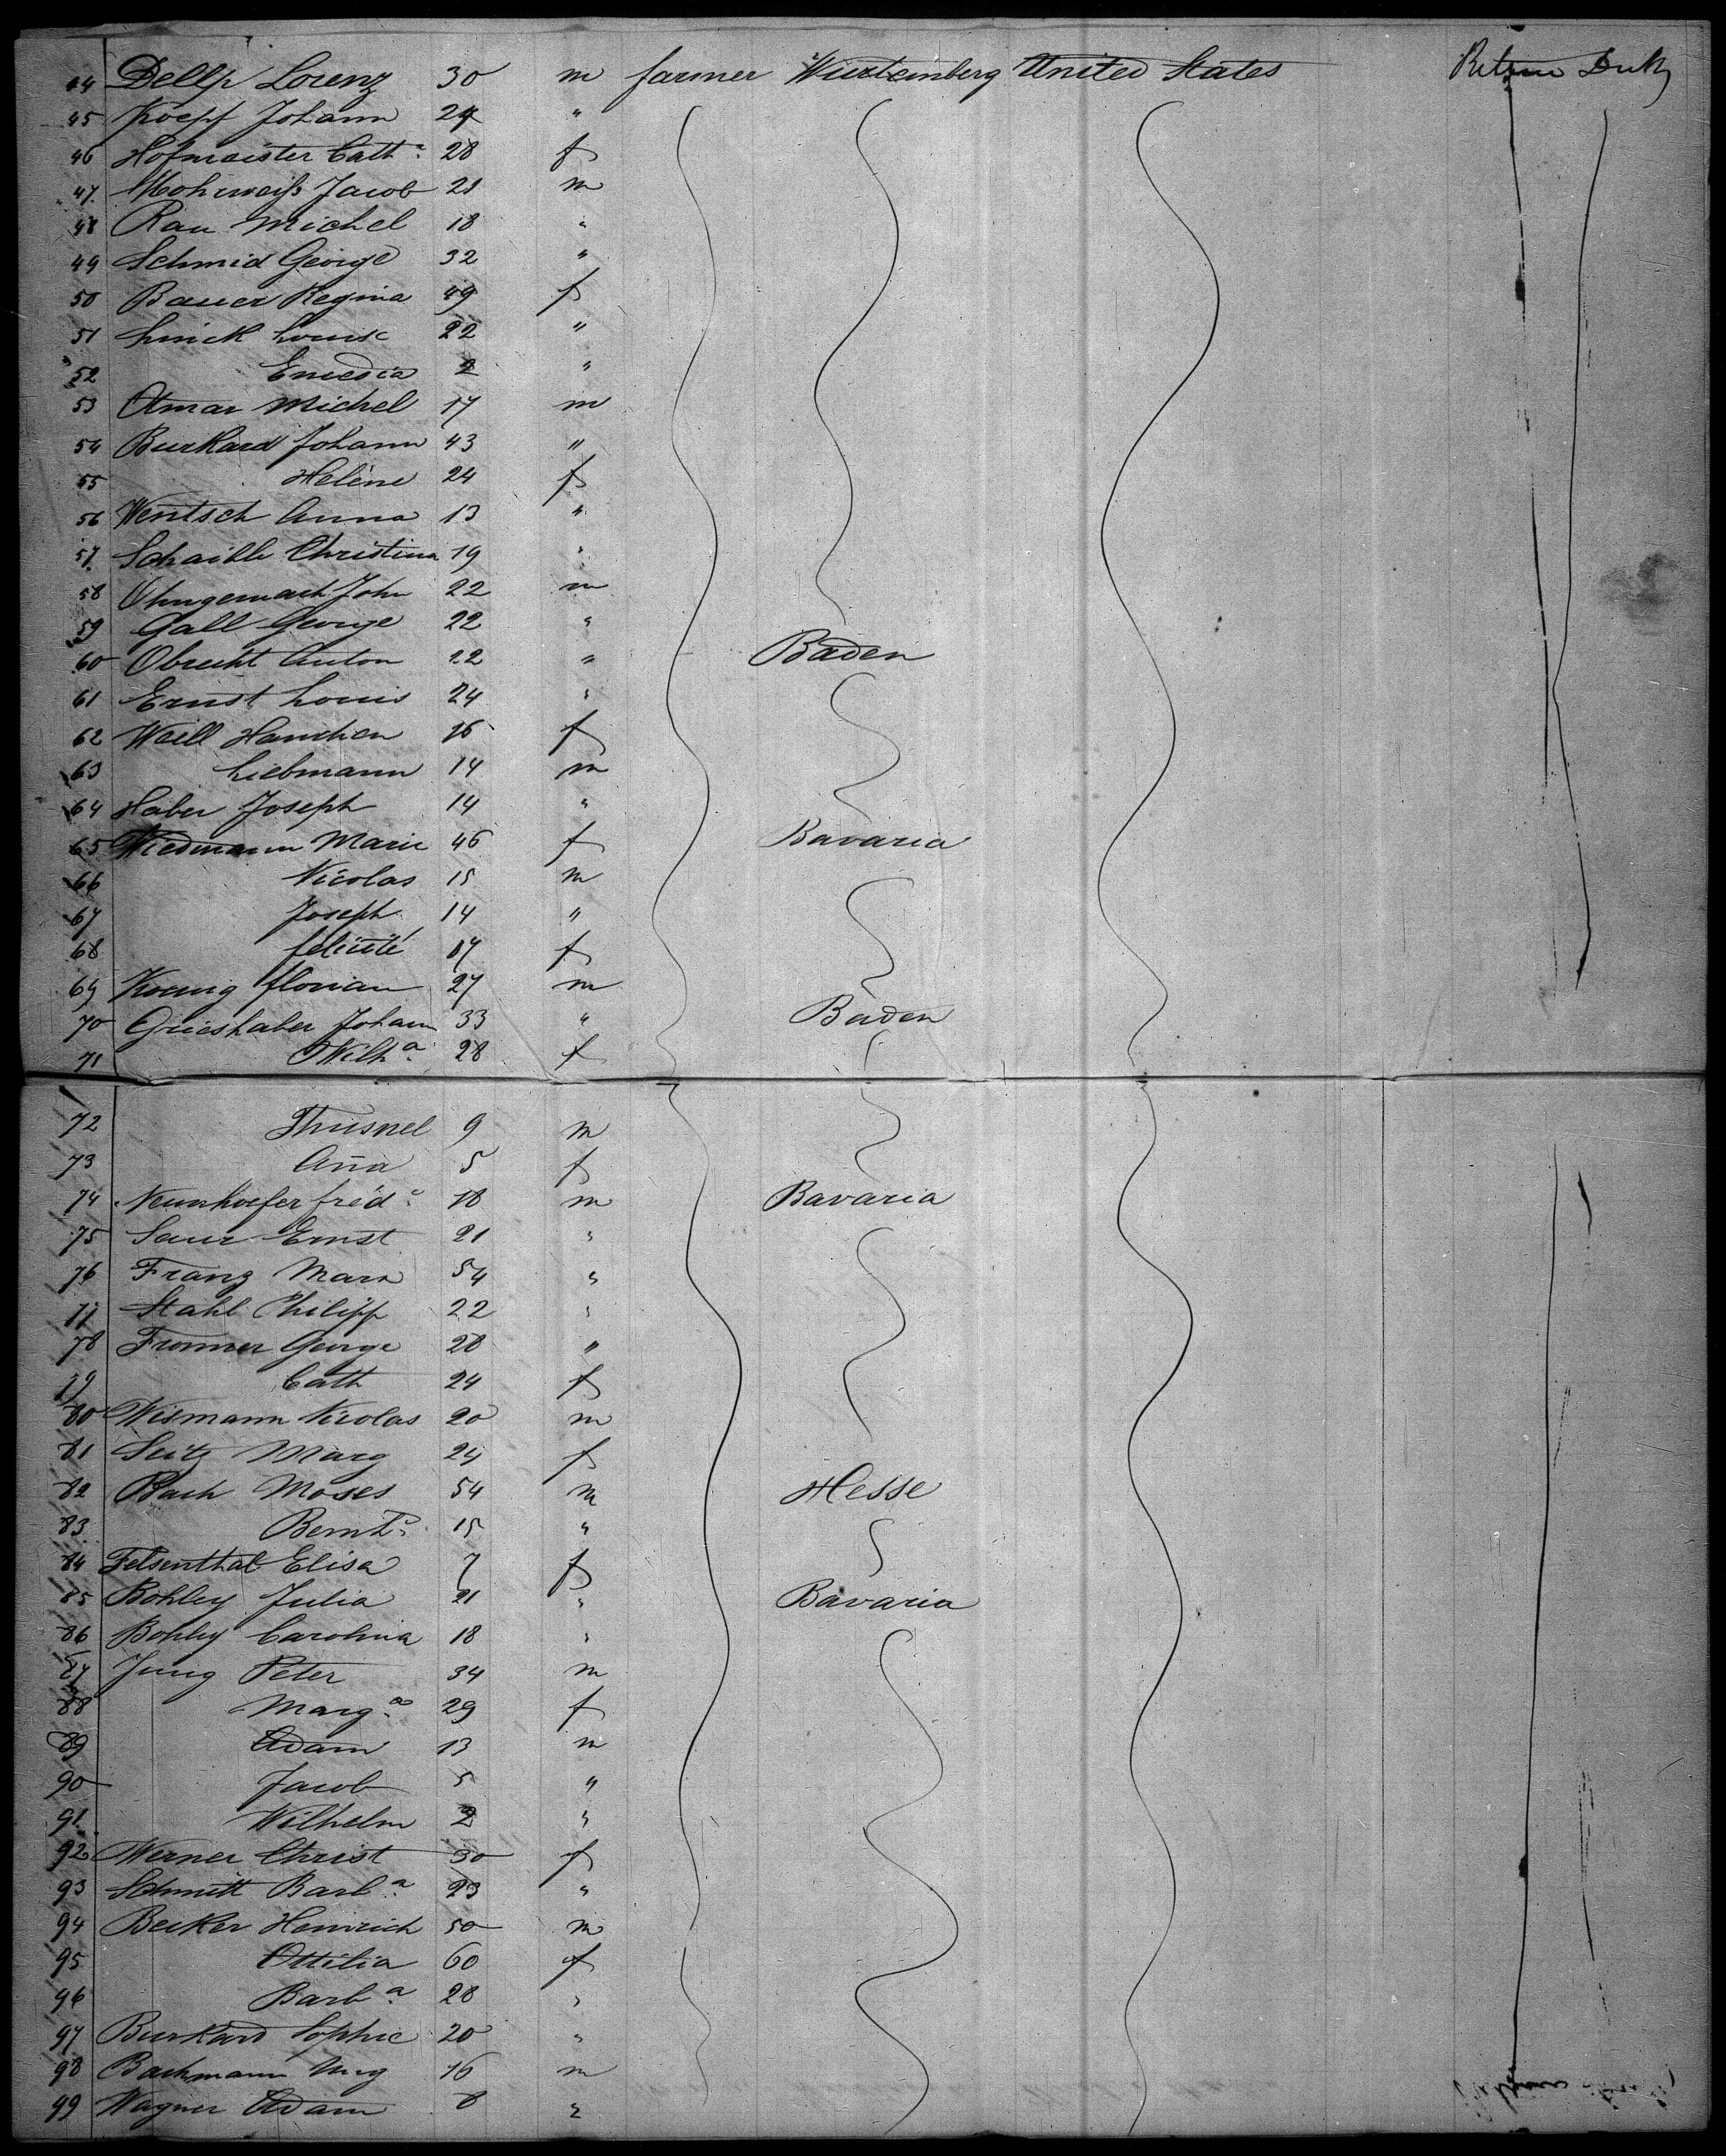 44 Dellp Lorenz 30 m farmer Wurtemberg United States
45 Koepf Johann 24 "
46 Hofmeister Cath.a 28 f
47 Mohrweiß Jacob 21 m
48 Rau Michel 18 "
49 Schmid George 32 "
50 Bauer Regina 49 f
51 Linck Louise 22 "
52 2 "
53 Amar Michel 17 m
54 Burkard Johann 43 "
55 Helène 24 f
56 Wentsch Anna 13 "
57 Schaible Christina 19 "
58 Ohngemach John 22 m
59 Gall George 22 "
60 Obrecht Anton 22 " Baden
61 Ernst Louis 24 "
62 Weill Hanchen 16 f
63 Liebmann 14 m
64 Haber Joseph 14 "
65 Wiedmann Marie 46 f Bavaria
66 Nicolas 15 m
67 Joseph 14 "
68 felicité 17 f
69 Koenig florian 27 m
70 Grieshaber Johann 33 " Baden
71 Wilh.a 28 f
72 Thusnel 9 m
73 Aña 5 f
74 Neunhoefer fréd.c 18 m Bavaria
75 Saur Ernst 21 "
76 Franz Marx 54 "
77 Stahl Philipp 22 "
78 Frommer George 28 "
79 Cath 24 f
80 Wismann Nicolas 20 m
81 Seitz Marg 24 f
82 Bach Moses 54 m Hesse
83 Bernh.d 15 "
84 Felsenthal Elisa 7 f
85 Bohley Julia 21 " Bavaria
86 Bohley Carolina 18 "
87 Jung Peter 34 m
88 Marg.a 29 f
89 Adam 13 m
90 Jacob 5 "
91 Wilhelm 2 "
92 Werner Christ 30 f
93 Schmitt Barb.a 23 "
94 Becker Heinrich 50 m
95 Ottilia 60 f
96 Barb.a 28 "
97 Burkard Sophie 20 "
98 Bachmann 16 m
99 Wagner Adam 8 "